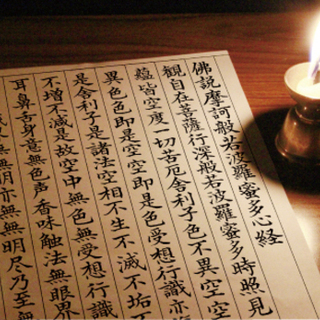 佛説摩訶般若波羅蜜多心経
観自在菩薩行深般若波羅蜜多時照見
蘊皆空度一切苦厄舍利子色不異空空
異色色即是空空即是色受想行識亦
是舎利子是諸法空相不生不滅不垢
不増不減是故空中無色無受想行識
耳鼻舌身意無色声香味触法無眼界
無無明亦無無明尽乃至無